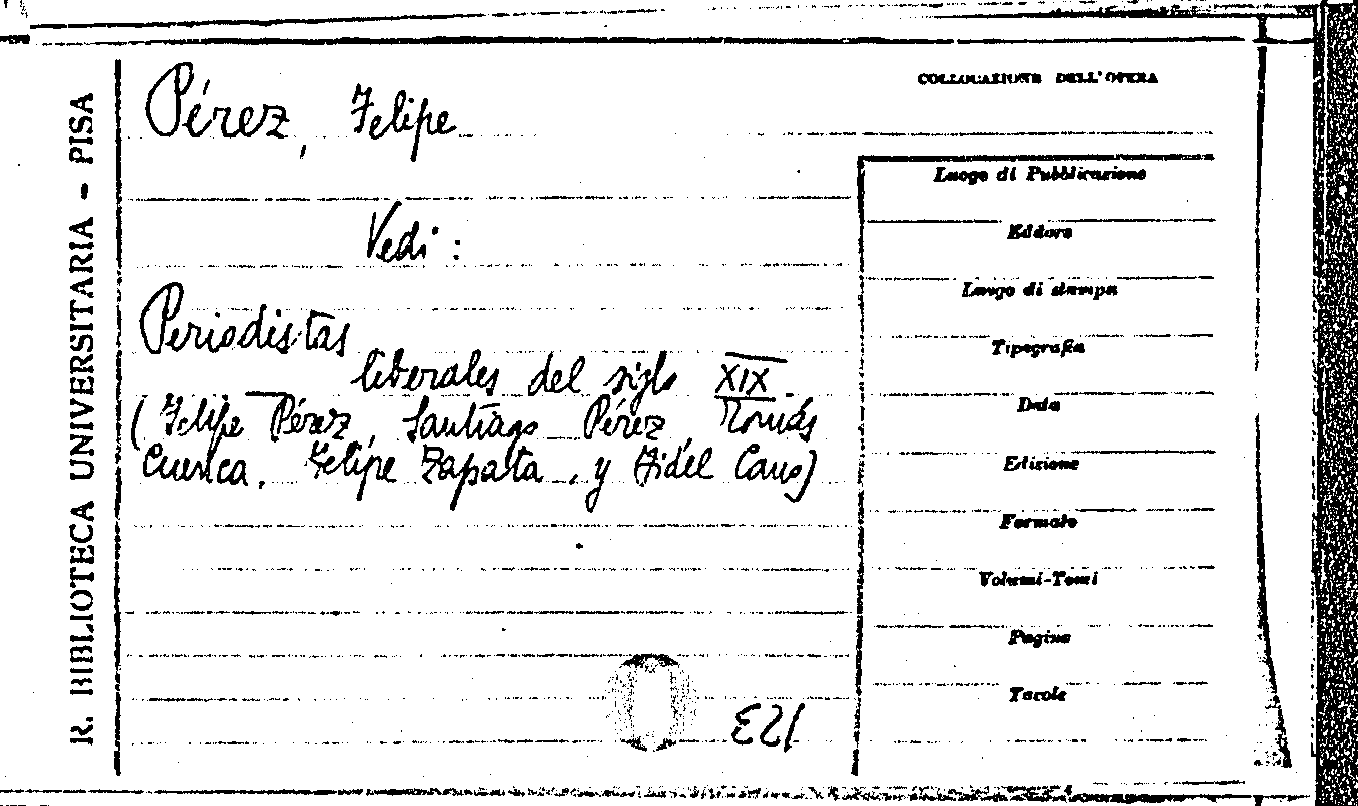 R. BIBLIOTECA UNIVERSITARIA - PISA
COLLOCAZIONE DELL'OPERA
Pérez, Felipe
Vedi :
Periodistas
liberales del siglo XIX.
(Felipe Pérez, Santiago Pérez, Tomás
Cuenca, Felipe Zapata, y Fidel Cano)
Luogo di Pubblicazione
Editore
Luogo di stampa
Tipografia
Data
Edizione
Formato
Volumi-Tomi
Pagine
Tavole
123